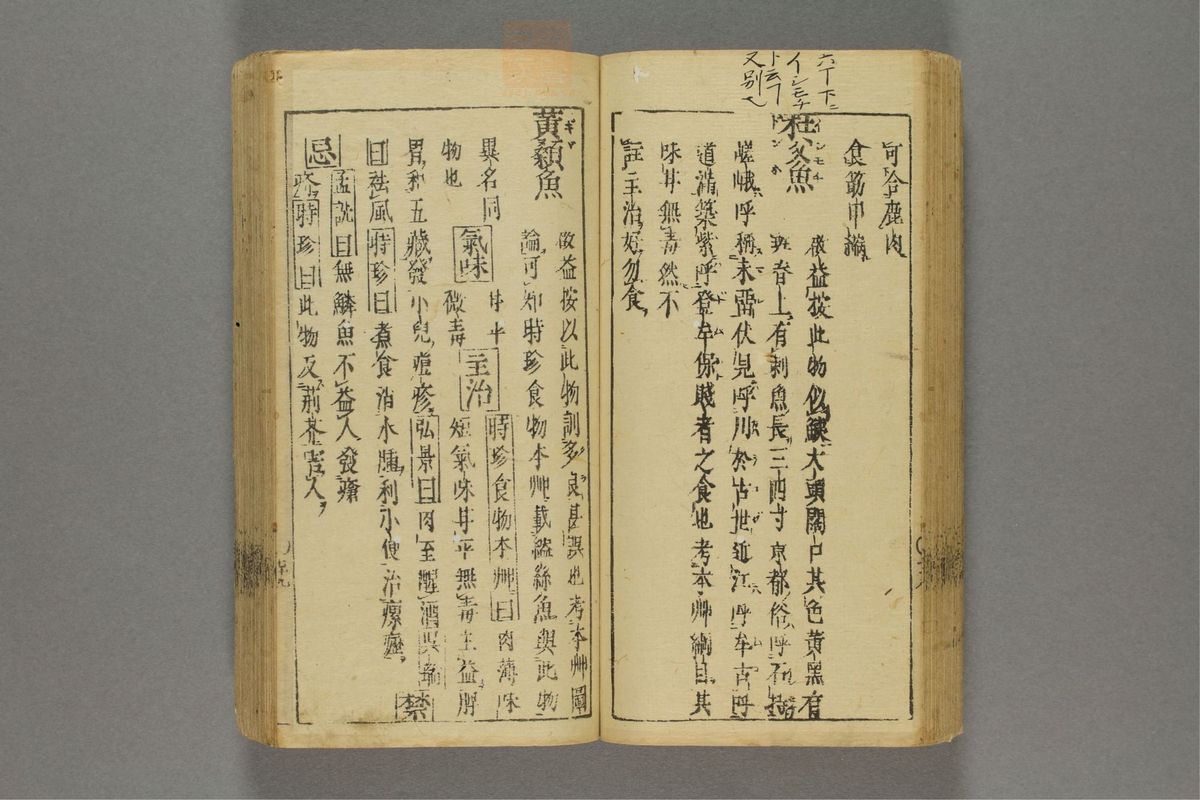 六丁下ニ
イシモチ
ト云フ
又別也
可合鹿肉
食筋巾縮
杜父魚
徴益按此物似鯎大頭闊口其色黄黒有
班脊上有刺魚長三四寸京都俗呼石持
嵯峨呼稱末雷伏見呼川於古世近江呼牟古呼
道滿築紫呼登牟保賤者之食也考本艸綱目其
味甘無毒然不
註主治姙勿食
黄顙魚
徴益按以此物訓多良甚誤也考本艸圖
論可知時珍食物本艸載鰛絲魚與此物
異名同
物也
氣味
甘平
微毒
主治
時珍食物本艸曰肉薄味
短氣味甘平無毒主益脾
胃和五藏發小兒痘疹弘景曰肉至醒酒呉瑞
曰祛風時珍曰煮食消水腫利小便治瘰癧
禁
忌
孟詵曰無鱗魚不益人發瘡
疥時珍曰此物反荊芥害人